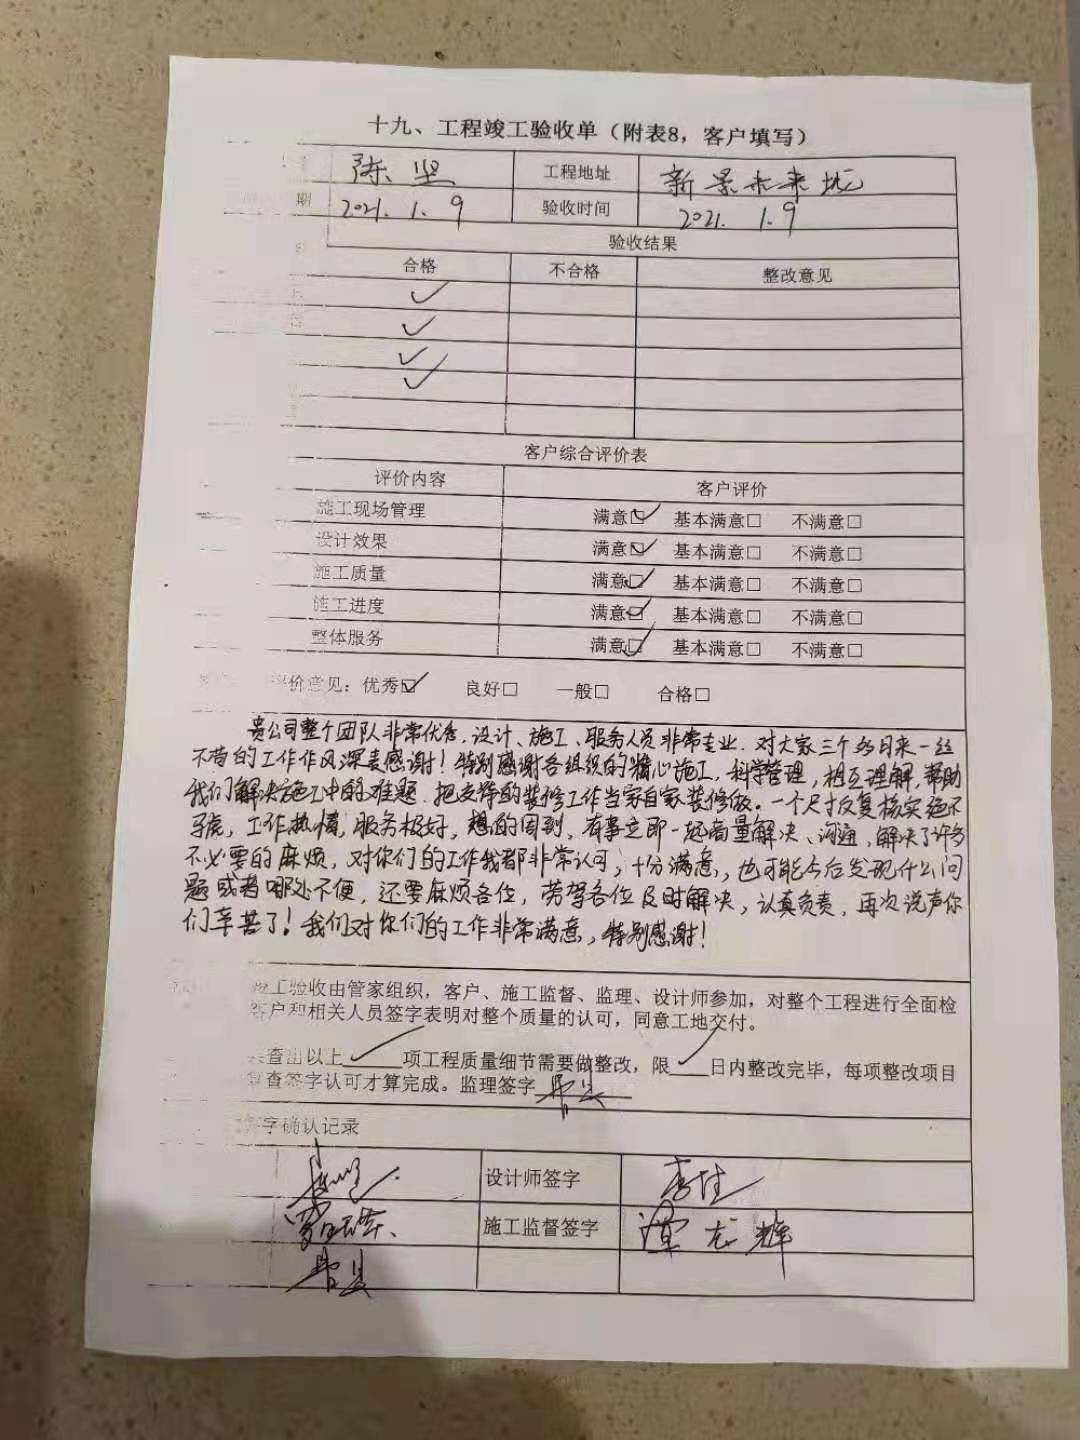 十九、工程竣工验收单（附表8，客户填写）
陈坚 工程地址 新景未来城
期 2021.1.9 验收时间 2021.1.9
验收结果
合格 不合格 整改意见
客户综合评价表
评价内容 客户评价
施工现场管理 满意☑ 基本满意□ 不满意□
设计效果 满意☑ 基本满意□ 不满意□
施工质量 满意☑ 基本满意□ 不满意□
施工进度 满意☑ 基本满意□ 不满意□
整体服务 满意☑ 基本满意□ 不满意□
评价意见：优秀☑ 良好□ 一般□ 合格□
贵公司整个团队非常优秀，设计、施工、服务人员非常专业．对大家三个多月来一丝
不苟的工作作风深表感谢！特别感谢各组织的精心施工，科学管理，相互理解，帮助
我们解决施工中的难题．把支持的装修工作当家自家装修做。一个尺寸反复核实绝不
马虎，工作热情，服务极好，想的周到，有事立即一起商量解决、沟通，解决了许多
不必要的麻烦，对你们的工作我都非常认可，十分满意，也可能今后发现什么问
题或者哪处不便，还要麻烦各位，劳驾各位及时解决，认真负责，再次说声你
们辛苦了！我们对你们的工作非常满意，特别感谢！
施工验收由管家组织，客户、施工监督、监理、设计师参加，对整个工程进行全面检
客户和相关人员签字表明对整个质量的认可，同意工地交付。
共查出以上 项工程质量细节需要做整改，限 日内整改完毕，每项整改项目
复查签字认可才算完成。监理签字
签字确认记录
设计师签字
施工监督签字 谭龙辉